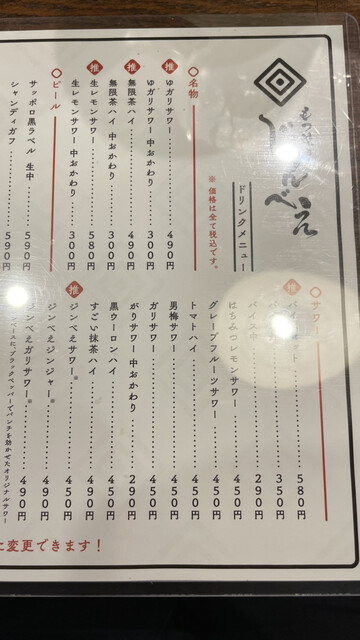 じんべえ
ドリンクメニュー
※ 価格は全て税込です。
名物
推 ゆガリサワー 490円
ゆガリサワー 中おかわり 300円
推 無限茶ハイ 490円
無限茶ハイ 中おかわり 300円
推 生レモンサワー 580円
生レモンサワー 中おかわり 300円
ビール
サッポロ黒ラベル 生中 590円
シャンディガフ 590円
サワー
推 580円
350円
バイス中 290円
はちみつレモンサワー 450円
グレープフルーツサワー 450円
トマトハイ 450円
男梅サワー 450円
ガリサワー 450円
がりサワー 中おかわり 290円
黒ウーロンハイ 450円
すごい抹茶ハイ 490円
推 じんべえサワー※ 450円
じんべえジンジャー※ 490円
じんべえガリサワー※ 490円
ベースに、ブラックペッパーでパンチを効かせたオリジナルサワー
に変更できます！